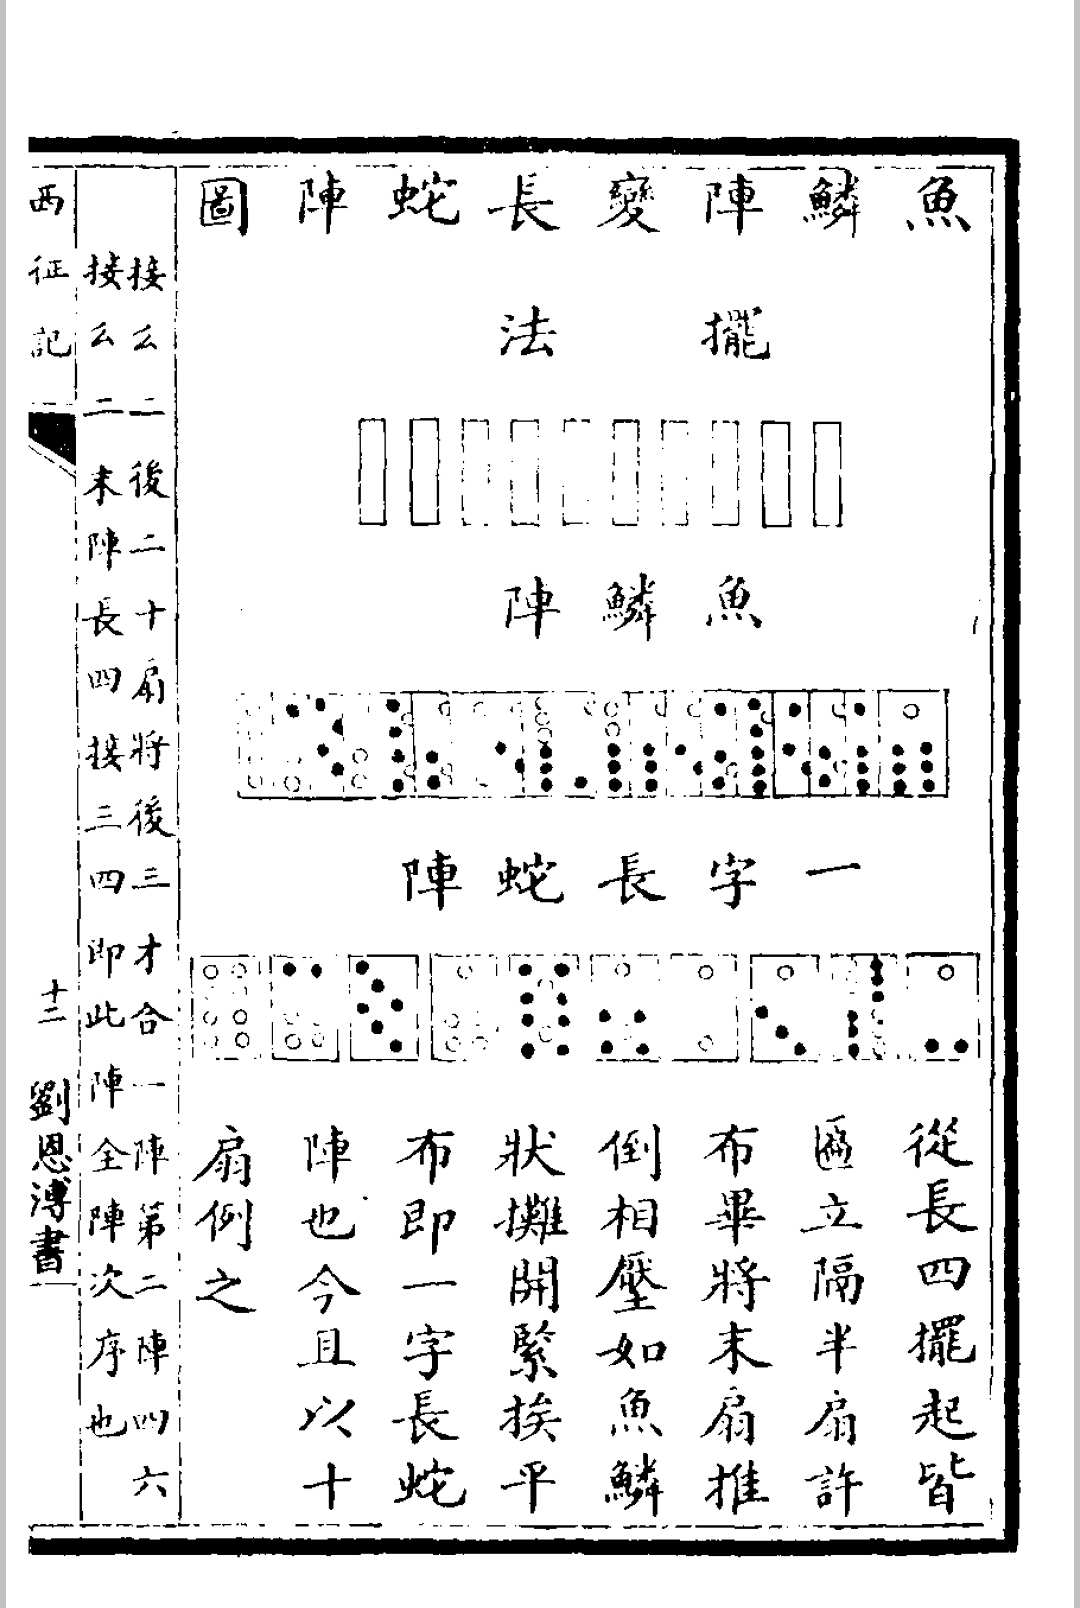 魚鱗陣變長蛇陣圖
擺法
魚鱗陣
一字長蛇陣
從長四擺起皆
匾立隔半扇許
布畢將末扇推
倒相壓如魚鱗
狀攤開緊挨平
布即一字長蛇
陣也今且以十
扇例之
接么二後二十扇將後三才合一陣第二陣四六
接么二末陣長四接三四即此陣全陣次序也
西征記
十二
劉恩溥書